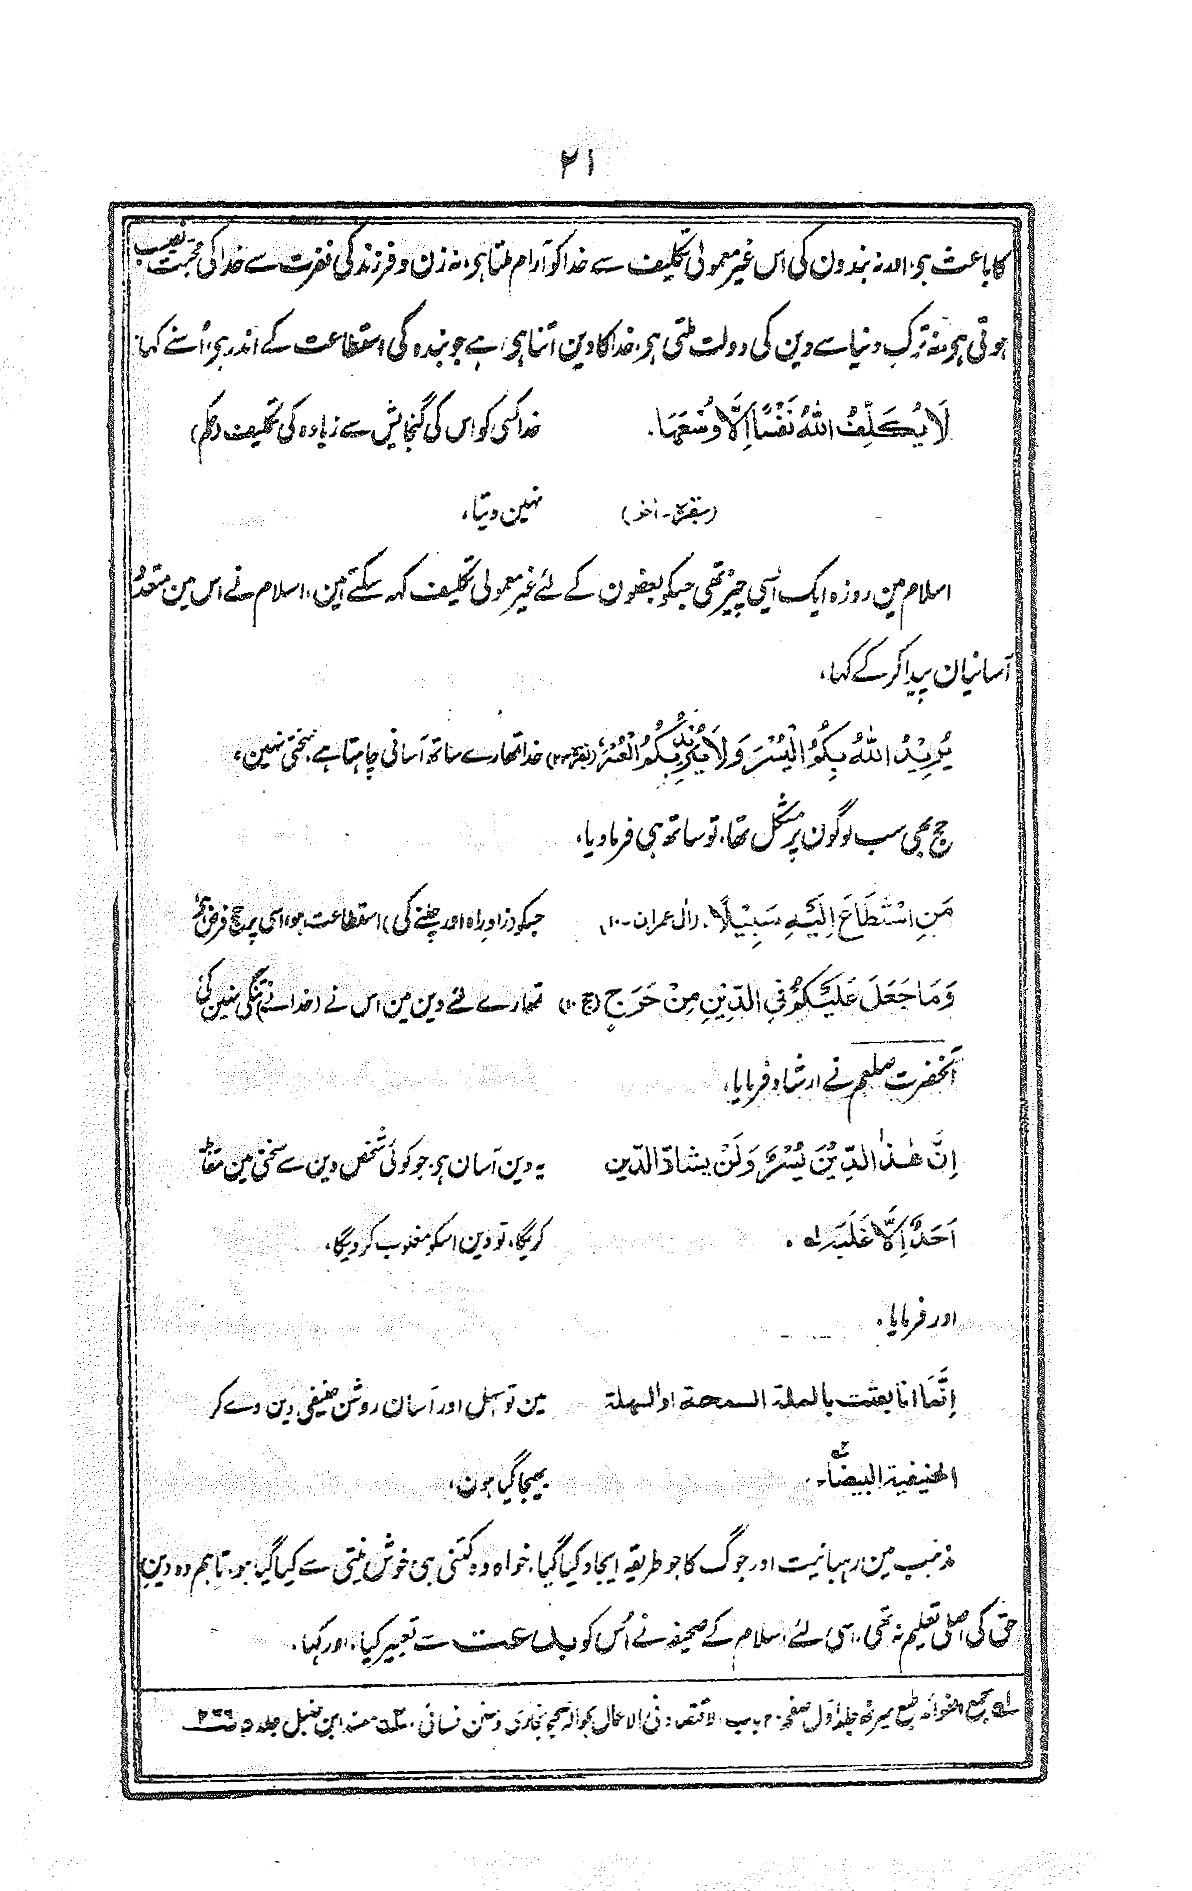 ۲۱
کا باعث ہی، اور نہ بندون کی اس غیر معمولی تکلیف سے خدا کو آرام ملتا ہی، نہ زن و فرزند کی نفرت سے خدا کی محبت نصیب
ہوتی ہی، نہ ترک دنیا سے دین کی دولت ملتی ہی، خدا کا دین اتنا ہی ہے جو بندہ کی استطاعت کے اندر ہی، اُسنے کہا:
لَا يُكَلِّفُ اللّٰهُ نَفْسًا اِلَّا وُسْعَهَا. خدا کسی کو اس کی گنجایش سے زیادہ کی تکلیف (حکم)
(بقرہ - آخر) نہین دیتا،
اسلام مین روزہ ایک ایسی چیز تھی جسکو بعضون کے لئے غیر معمولی تکلیف کہہ سکتے ہین، اسلام نے اس مین متعدد
آسانیان پیدا کر کے کہا،
يُرِيْدُ اللّٰهُ بِكُمُ الْيُسْرَ وَلَا يُرِيْدُ بِكُمُ الْعُسْرَ (بقرہ ۲۳) خدا تمھارے ساتھ آسانی چاہتا ہے، سختی نہین،
حج بھی سب لوگون پر مشکل تھا، تو ساتھ ہی فرما دیا،
مَنِ اسْتَطَاعَ اِلَيْهِ سَبِيْلًا. (آل عمران - ۱۰) جسکو (زاد راہ اور چلنے کی) استطاعت ہو، اسی پر حج فرض ہی
وَمَا جَعَلَ عَلَيْكُمْ فِي الدِّيْنِ مِنْ حَرَجٍ (حج ۱۰) تمھارے لئے دین مین اس نے (خدا نے) تنگی نہین کی
آنحضرت صلعم نے ارشاد فرمایا،
اِنَّ هٰذَا الدِّيْنَ يُسْرٌ وَلَنْ يشادّ الدّين یہ دین آسان ہی، جو کوئی شخص دین سے سختی مین مقابلہ
اَحَدٌ اِلَّا غَلَبَه لہ . کریگا، تو دین اسکو مغلوب کر دیگا،
اور فرمایا،
اِنَّمَا انا بعثت بالملة السمحة او السهلة مین تو سہل اور آسان روشن حنیفی دین دے کر
الحنيفية البيضاء- ٢ه بھیجا گیا ہون،
مذہب مین رہبانیت اور جوگ کا جو طریقہ ایجاد کیا گیا، خواہ وہ کتنی ہی خوش نیتی سے کیا گیا ہو، تاہم وہ دینِ
حق کی اصلی تعلیم نہ تھی، اسی لئے اسلام کے صحیفہ نے اُس کو بدعت سے تعبیر کیا، اور کہا،
لہ جمع الفوائد طبع میرٹھ جلد اول صفحہ ۲۰ باب الاقتصاد فی الاعمال بحوالہ صحیح بخاری و سنن نسائی، ۲ه مسند ابن حنبل جلد ۵ ص ۲۶۶